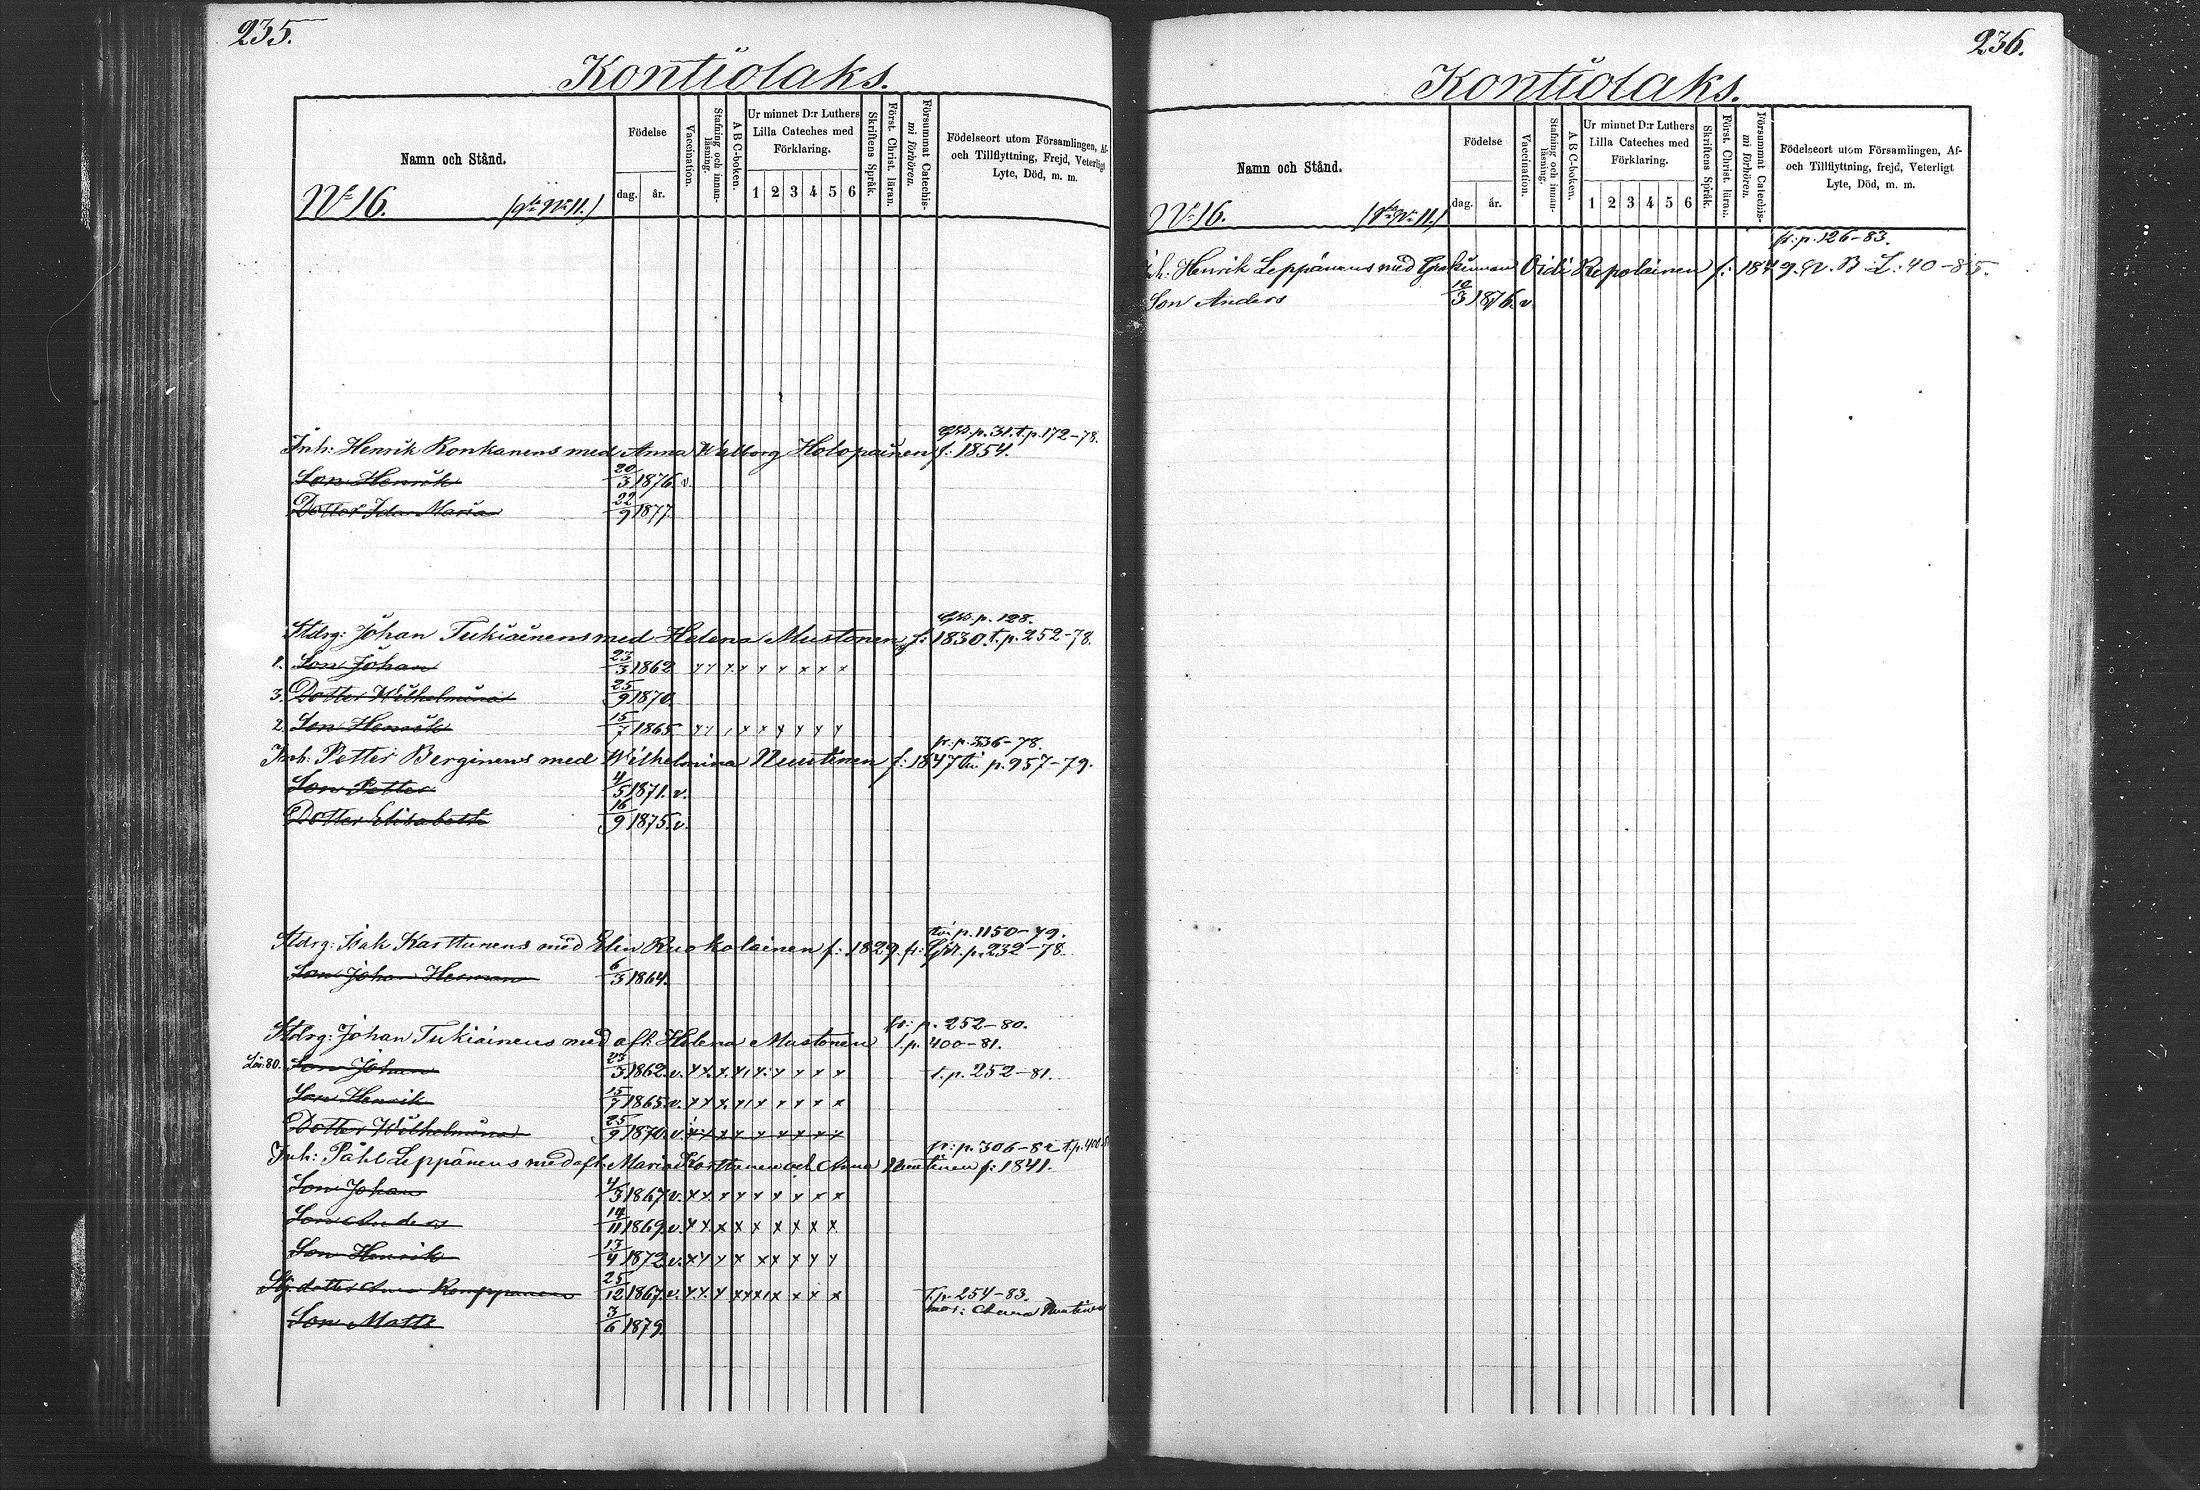 235.
Kontiolaks.
Namn och Stånd.
Födelse
dag. år.
Vaccination.
Stafning och innanläsning.
A B C-boken.
Ur minnet D:r Luthers Lilla Cateches med Förklaring.
1 2 3 4 5 6
Skriftens Språk.
Först. Christ. läran.
Försummat Catechismi förhören.
Födelseort utom Församlingen, Af- och Tillflyttning, Frejd, Veterligt Lyte, Död, m. m.
No 16. No 11.)
p. 31. t. p. 172-78.
Inh: Henrik Ronkanens med Anna Walborg Holopainen f: 1854.
Son Henrik 20/3 1876 v.
Dotter Ida Maria 22/9 1877.
p. 128.
Stdrg: Johan Tukiainens med Helena Mustonen f: 1830. t. p. 252-78.
1. Son Johan 23/3 1862 x x x x x x x x x
3. Dotter Wilhelmina 25/9 1870.
2. Son Henrik 15/7 1865
fr. p. 336-78.
Inh: Petter Berginens med Wilhelmina Nuutinen f: 1847 till p. 957-79.
Son Petter 4/5 1871. v.
Dotter Elisabeth 16/9 1875. v.
till p. 1150-79.
Stdrg: Isak Karttunens med Elin Ruokolainen f: 1829. fr: p. 232-78.
Son Johan Herman 6/3 1864.
fr: p. 252-80.
Stdrg: Johan Tukiainens med afl. Helena Mustonen t. p. 400-81.
Son Johan 23/3 1862. v. t. p. 252-81.
Son Henrik 15/7 1865. v.
Dotter Wilhelmina 25/9 1870. v.
fr: p. 306-82
Inh: Påhl Leppänens med afl. Maria Karttunen och Anna Nuutinen f: 1841.
Son Johan 4/3 1867. v.
Son Anders 14/11 1869. v.
Son Henrik 13/4 1872. v.
Stj. dotter Anna Romppanen 25/12 1867. v. T. p. 254-83.
mor: Anna Nuutinen
Son Matts 3/6 1879.
236.
Kontiolaks.
Namn och Stånd.
Födelse
dag. år.
Vaccination.
Stafning och innanläsning.
A B C-boken.
Ur minnet D:r Luthers Lilla Cateches med Förklaring.
1 2 3 4 5 6
Skriftens Språk.
Först. Christ. läran.
Försummat Catechismi förhören.
Födelseort utom Församlingen, Af- och Tillflyttning, frejd, Veterligt Lyte, Död, m. m.
No 16. No 11.)
fr: p. 126-83.
Inh: Henrik Leppänens med Repolainen f: 1849.
Son Anders 10/3 1876. v.